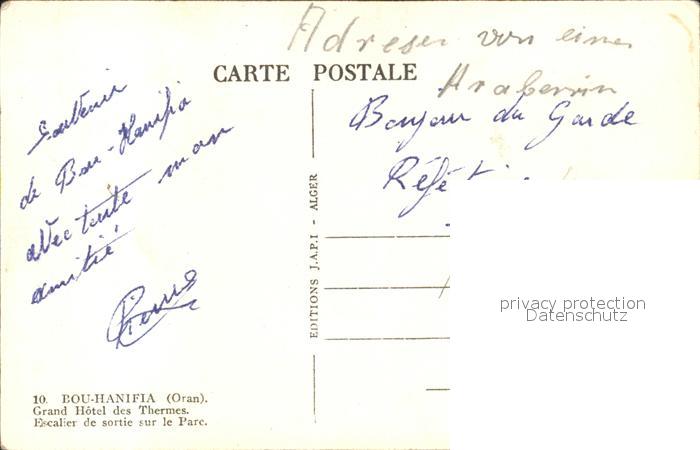 Adresse von einer
Araberin
CARTE POSTALE
Souvenir
de Bou-Hanifia
avec toute mon
amitié
Pierre
Bonjour du Garde
EDITIONS J.A.P.I - ALGER
privacy protection
Datenschutz
10. BOU-HANIFIA (Oran).
Grand Hôtel des Thermes.
Escalier de sortie sur le Parc.